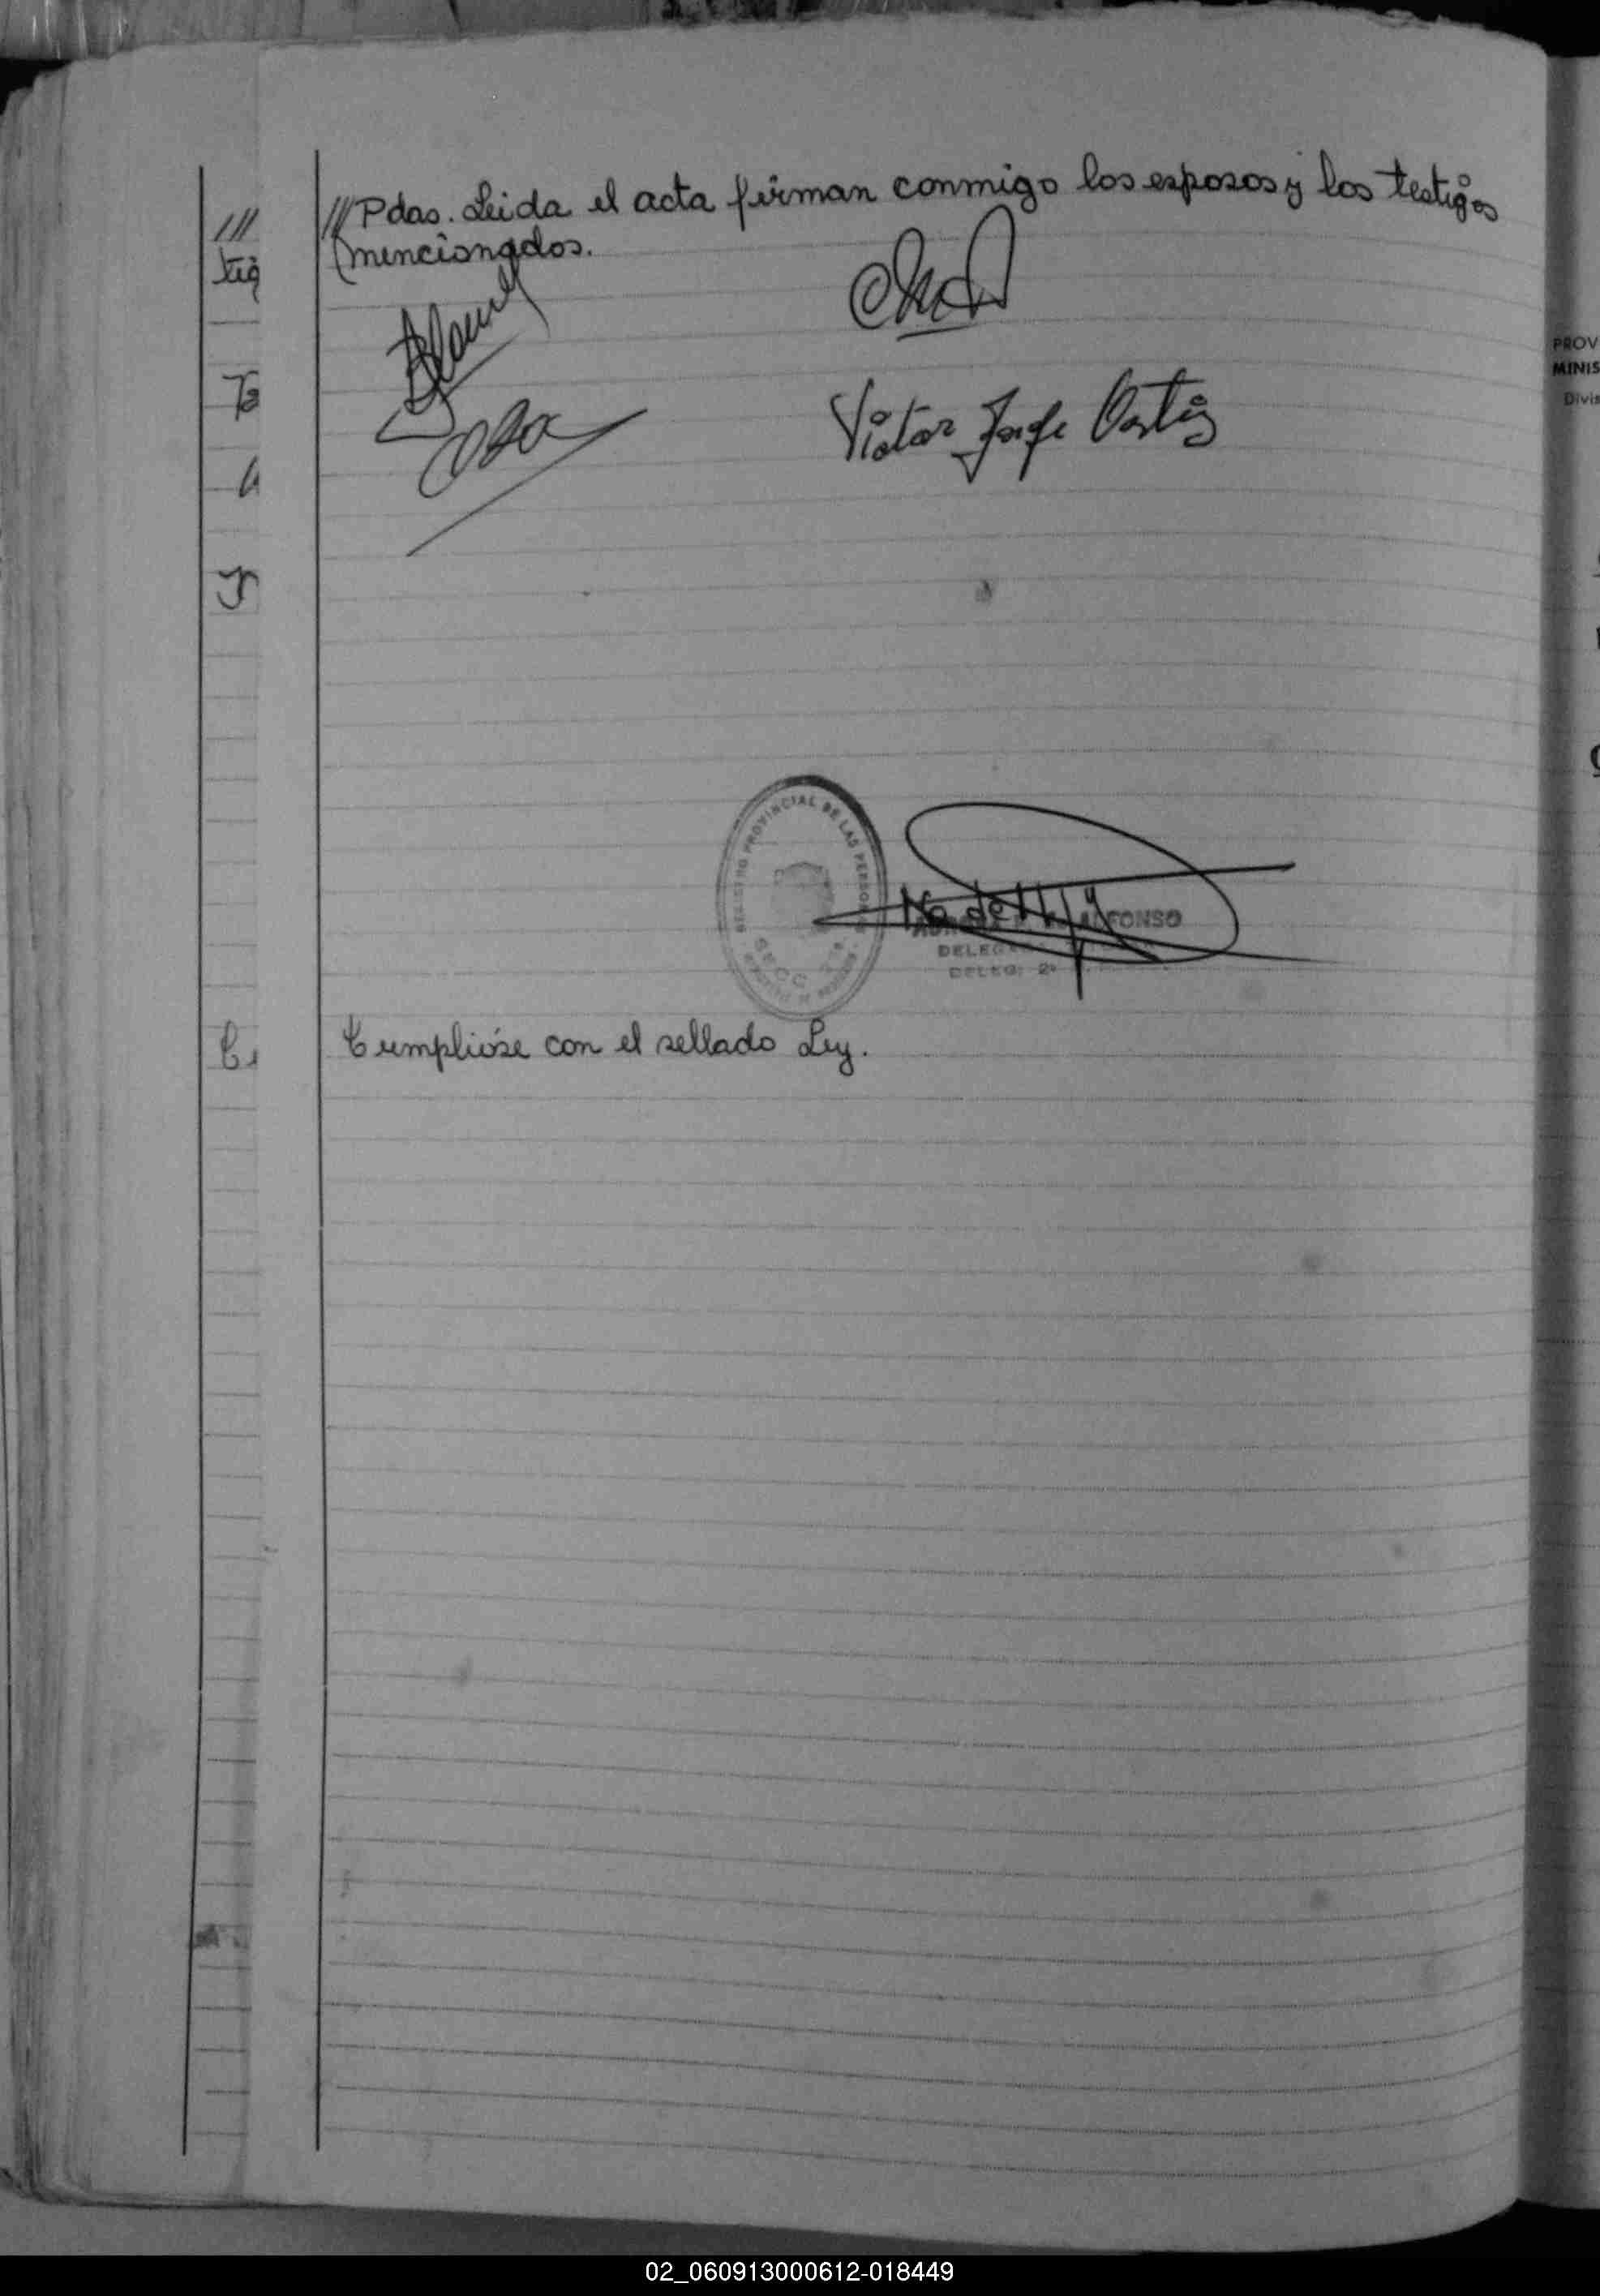 ///Pdas. Leida el acta firman conmigo los esposos y los testigos
mencionados.
Victor Jorge Ortiz
REGISTRO PROVINCIAL DE LAS PERSONAS
SECC.
ALFONSO
DELEG. 2ª
Cumplióse con el sellado Ley.
///
tig
PROV
MINIS
Divis
02_060913000612-018449